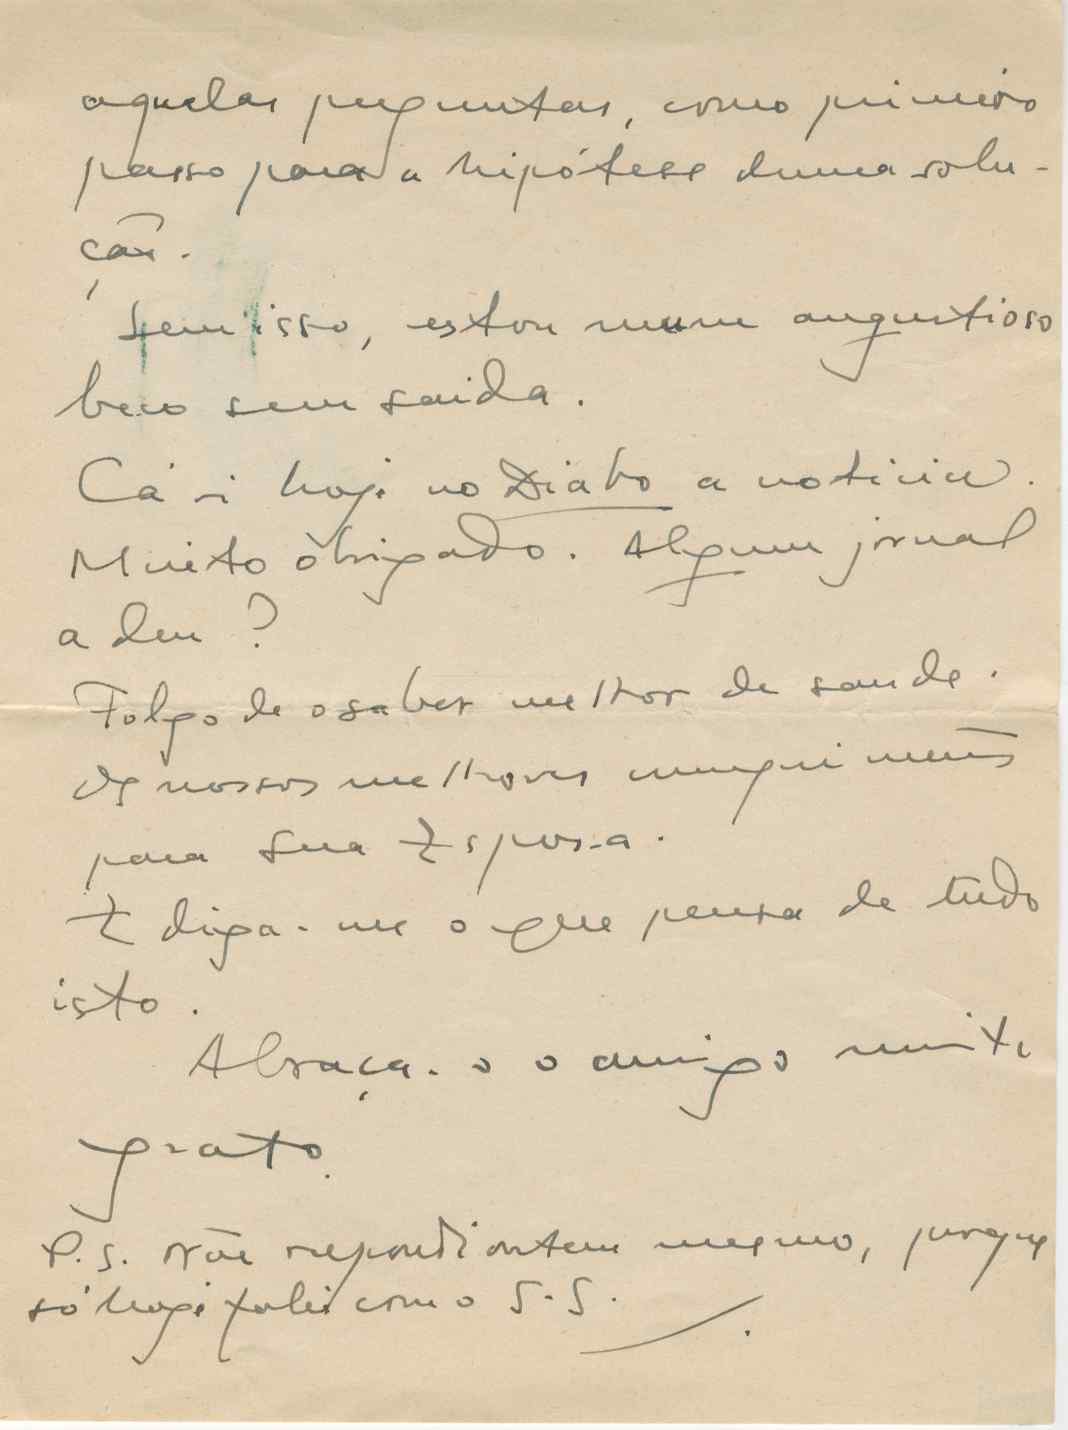 aquelas perguntas, como primeiro
passo para a hipótese duma solu-
ção.
Sem isso, estou num angustioso
beco sem saida.
Cá vi hoje no Diabo a noticia.
Muito òbrigado. Algum jornal
a deu?
Folgo de o saber melhor de saude.
Os nossos melhores cumprimentos
para sua Esposa.
E diga-me o que pensa de tudo
isto.
Abraça-o o amigo muito
grato
P.S. Não respondi ontem mesmo, porque
só hoje falei com o S.S.